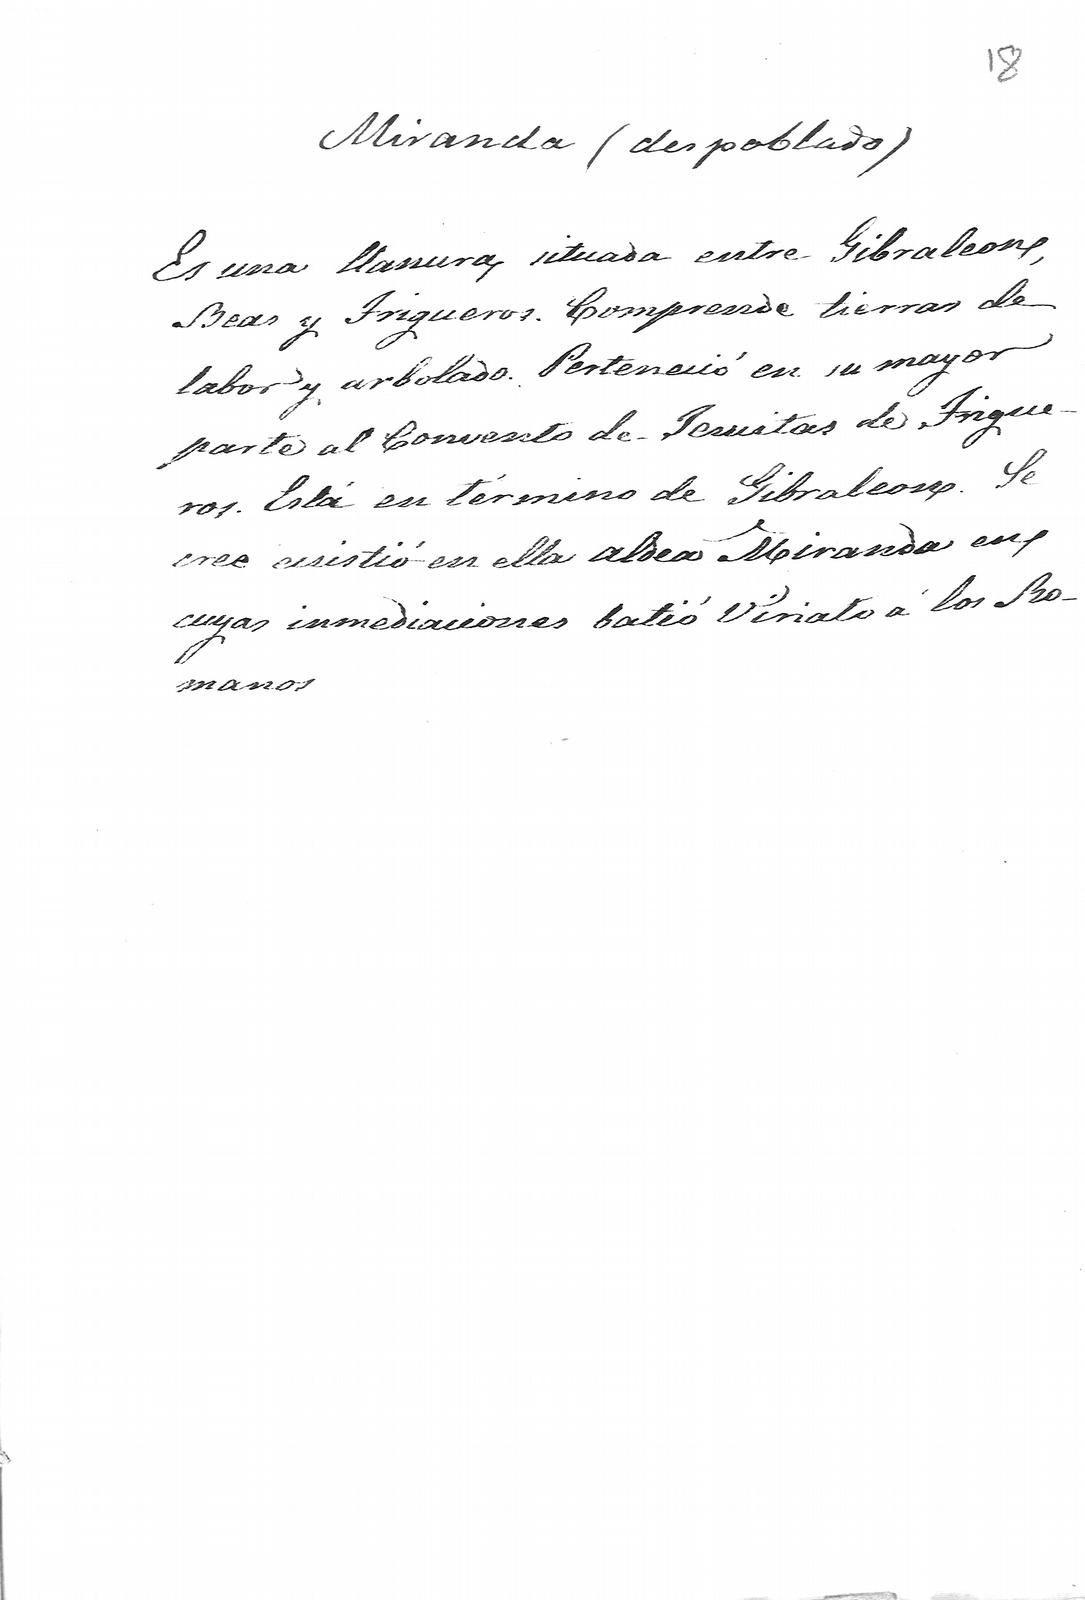 18
Miranda (despoblado)
Es una llanura, situada entre Gibraleon,
Beas y Trigueros. Comprende tierras de
labor y arbolado. Perteneció en su mayor
parte al Convento de Jesuitas de Trigue-
ros. Está en término de Gibraleon. Se
cree existió en ella aldea Miranda en
cuyas inmediaciones batió Viriato á los Ro-
manos